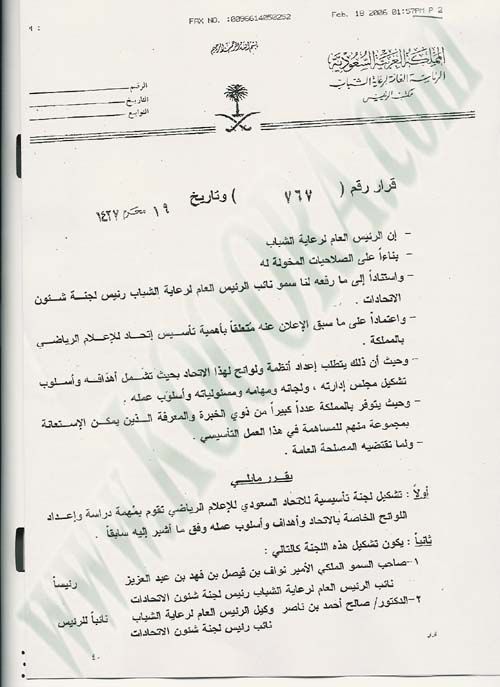 FAX NO. :0096614050252 Feb. 18 2006 01:57PM P 2
بسم الله الرحمن الرحيم
المملكة العربية السعودية
الرئاسة العامة لرعاية الشباب
مكتب الرئيس
الرقم
التاريخ
التوابع
قرار رقم ( ٧٦٧ ) وتاريخ ١٩ محرم ١٤٢٧
- إن الرئيس العام لرعاية الشباب
- بناءاً على الصلاحيات المخولة له
- واستناداً إلى ما رفعه لنا سمو نائب الرئيس العام لرعاية الشباب رئيس لجنة شئون
الاتحادات .
- واعتماداً على ما سبق الإعلان عنه متعلقاً بأهمية تأسيس إتحاد للإعلام الرياضي
بالمملكة .
- وحيث أن ذلك يتطلب إعداد أنظمة ولوائح لهذا الاتحاد بحيث تشمل أهدافه وأسلوب
تشكيل مجلس إدارته ، ولجانه ومهامه ومسئولياته وأسلوب عمله .
- وحيث يتوفر بالمملكة عدداً كبيراً من ذوي الخبرة والمعرفة الذين يمكن الإستعانة
بمجموعة منهم للمساهمة في هذا العمل التأسيسي .
- ولما تقتضيه المصلحة العامة .
يقرر مايلي
أولاً : تشكيل لجنة تأسيسية للاتحاد السعودي للإعلام الرياضي تقوم بمهمة دراسة وإعداد
اللوائح الخاصة بالاتحاد وأهداف وأسلوب عمله وفق ما أشير إليه سابقاً .
ثانياً : يكون تشكيل هذه اللجنة كالتالي :
١-صاحب السمو الملكي الأمير نواف بن فيصل بن فهد بن عبد العزيز رئيساً
نائب الرئيس العام لرعاية الشباب رئيس لجنة شئون الاتحادات
٢-الدكتور/ صالح أحمد بن ناصر وكيل الرئيس العام لرعاية الشباب نائباً للرئيس
نائب رئيس لجنة شئون الاتحادات
www.KOOORA.com